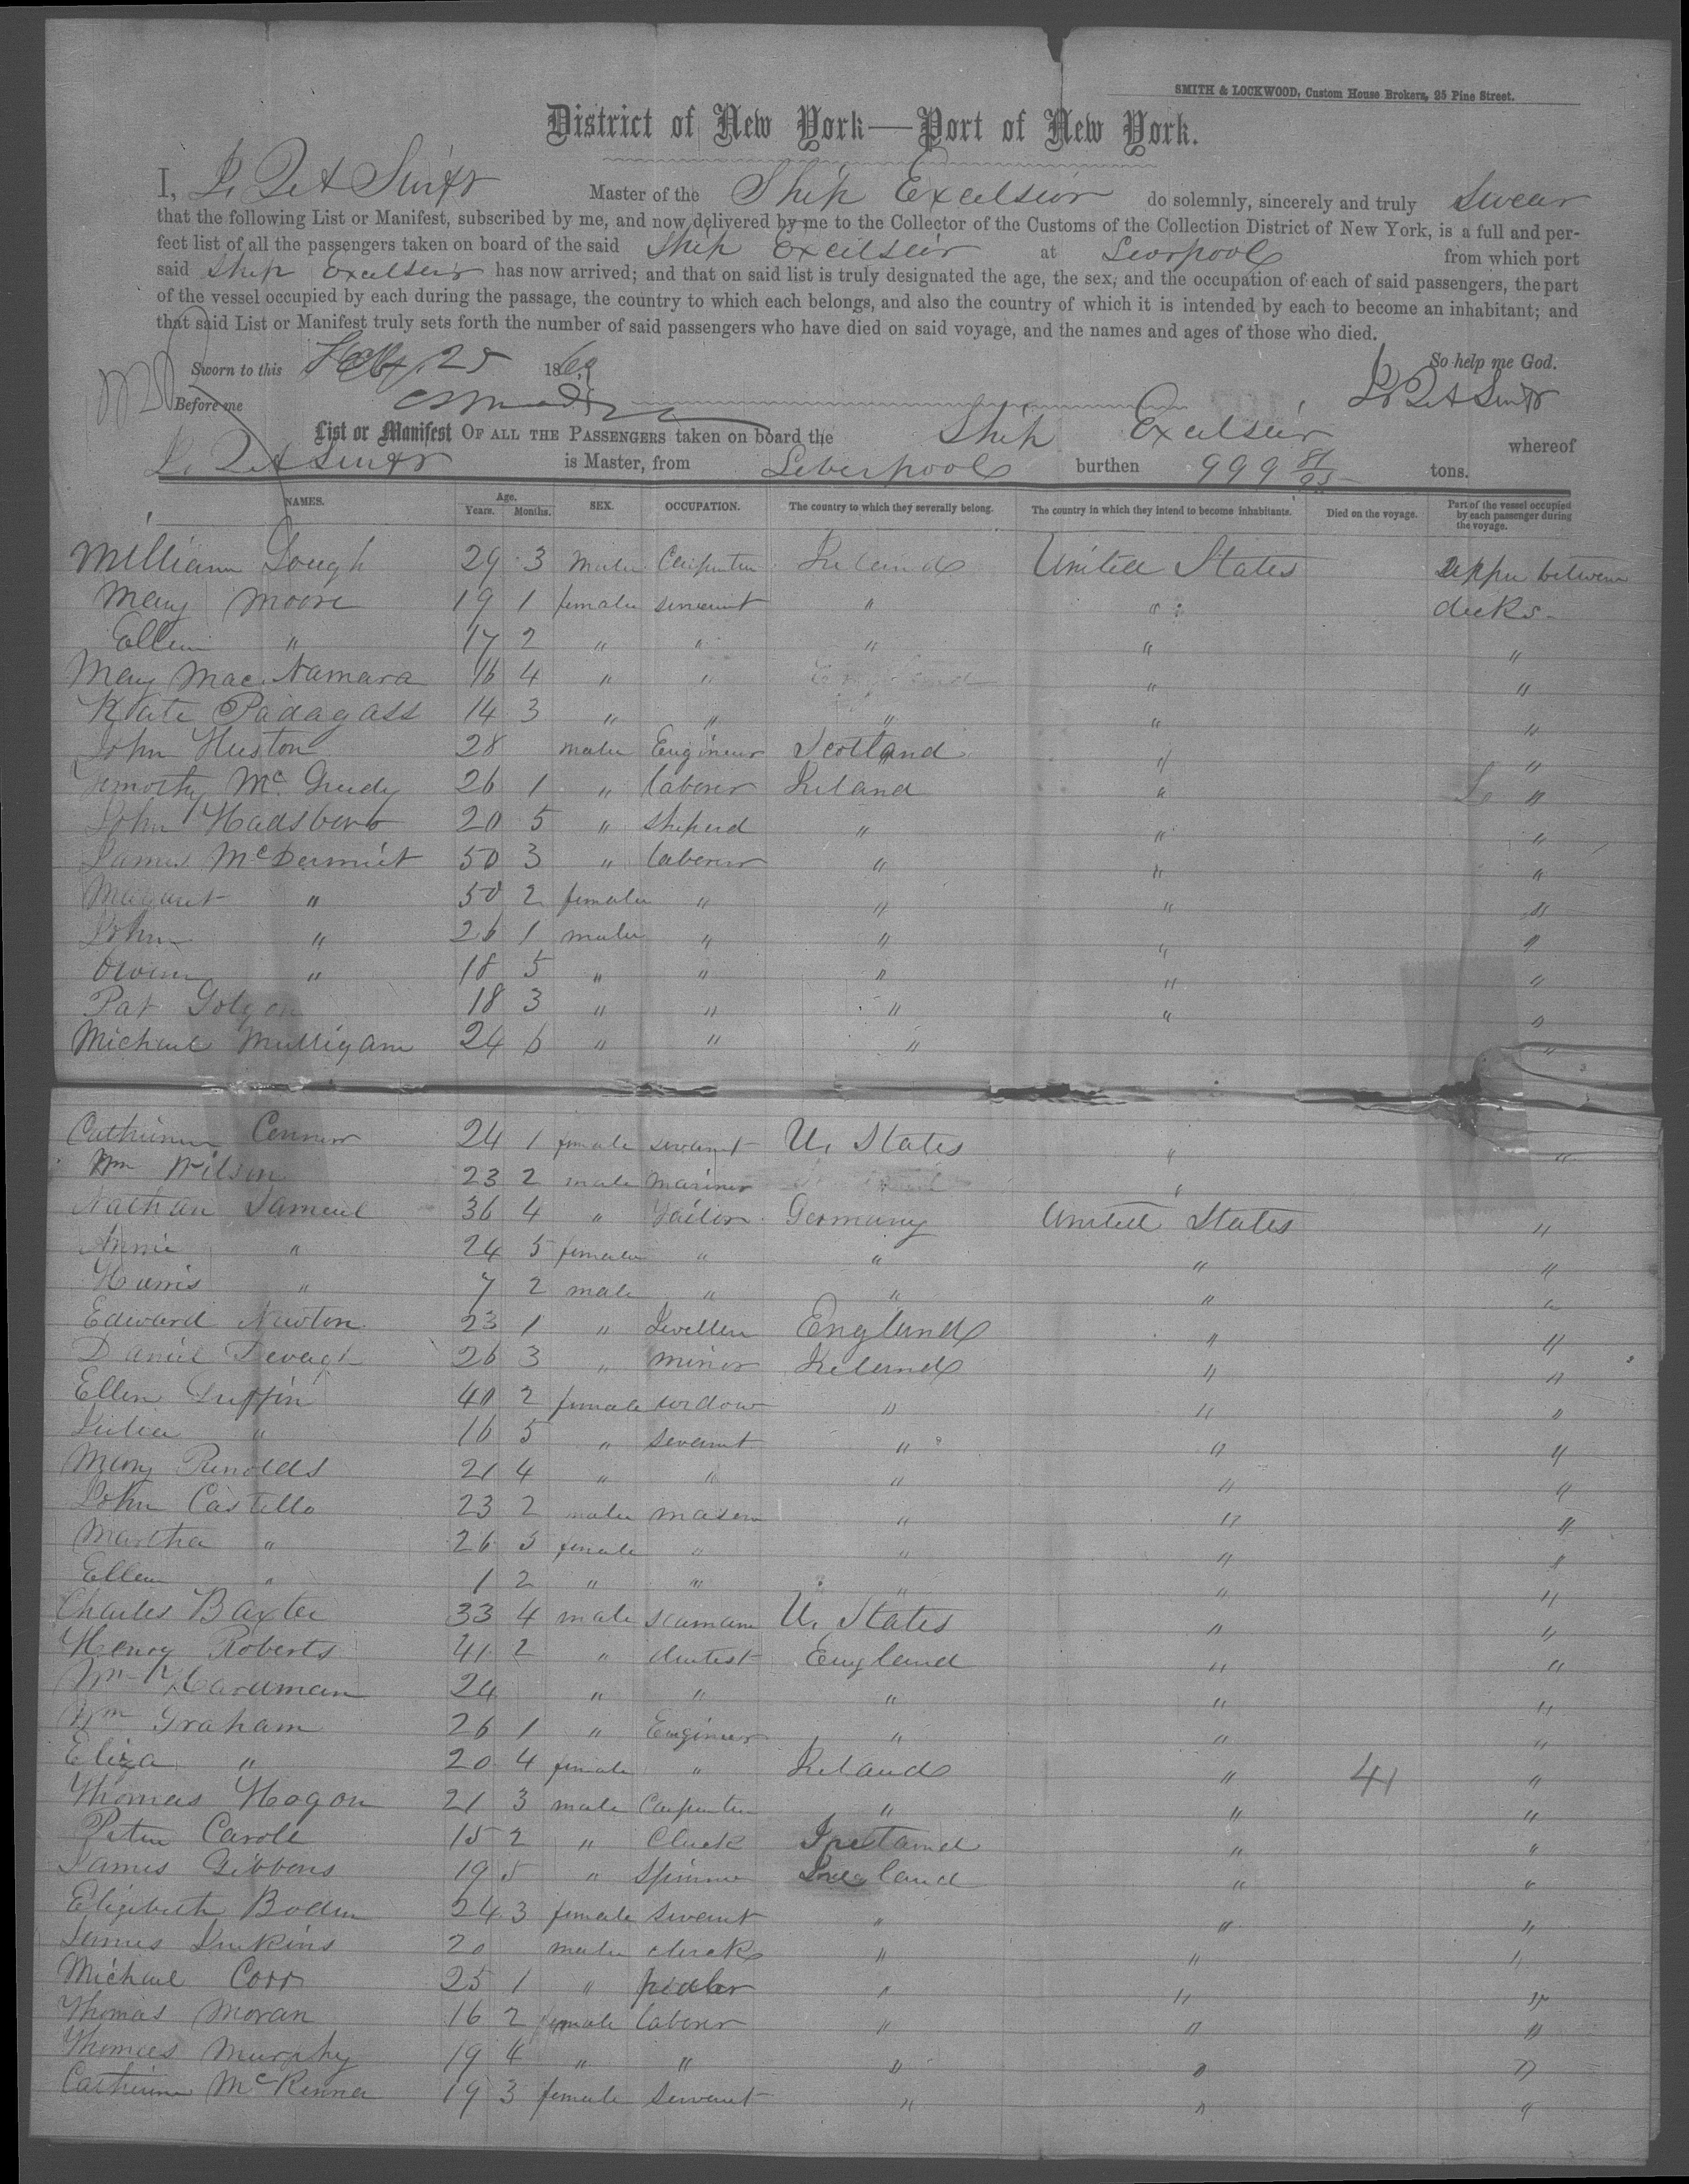 SMITH & LOCKWOOD, Custom House Brokers, 25 Pine Street.
District of New York—Port of New York.
I, Master of the Ship Excelsior do solemnly, sincerely and truly swear
that the following List or Manifest, subscribed by me, and now delivered by me to the Collector of the Customs of the Collection District of New York, is a full and per-
fect list of all the passengers taken on board of the said Ship Excelsior at Leorpool from which port
said Ship Excelsior has now arrived; and that on said list is truly designated the age, the sex, and the occupation of each of said passengers, the part
of the vessel occupied by each during the passage, the country to which each belongs, and also the country of which it is intended by each to become an inhabitant; and
that said List or Manifest truly sets forth the number of said passengers who have died on said voyage, and the names and ages of those who died.
Sworn to this 25 1860 So help me God.
Before me
List or Manifest OF ALL THE PASSENGERS taken on board the Ship Excelsior whereof
is Master, from Leberpool burthen 999 81/95 tons.
NAMES. Age. Years. Months. SEX. OCCUPATION. The country to which they severally belong. The country in which they intend to become inhabitants. Died on the voyage. Part of the vessel occupied by each passenger during the voyage.
William Lough 29 3 male Carpenter Ireland United States upper between
Mary Moore 19 1 female servant " " decks
Ellen " 17 2 " " " " "
Mary Mac Namara 16 4 " " England " "
Kate Padagass 14 3 " " " " "
John Huston 28 male Engineer Scotland " "
Timothy Mc Grudy 26 1 " laborer Ireland " "
John Hadsbero 20 5 " sheperd " " "
James McDermiet 50 3 " laborer " " "
Magaret " 50 2 female " " " "
John " 26 1 male " " " "
Owen " 18 5 " " " " "
Pat 18 3 " " " " "
Michael Mulligan 24 6 " " " "
Catherine Connor 24 1 female servant U. States " "
Wm Wilson 23 2 male mariner " "
Nathan Samuel 36 4 " Tailor Germany United States "
Annie " 24 5 female " " " "
Harris " 7 2 male " " " "
Edward Newton 23 1 " Jweller England " "
Daniel 26 3 " minor Ireland " "
Ellen Griffin 40 2 female widow " " "
Julia " 16 5 " servant " " "
Mary Renolds 21 4 " " " " "
John Castello 23 2 male mason " " "
Martha " 26 5 female " " " "
Ellen " 1 2 " " " " "
Charles Baxter 33 4 male seaman U. States " "
Henry Roberts 41 2 " dentest England " "
Wm Harduman 24 " " " " "
Wm Graham 26 1 " Engineer " " "
Eliza " 20 4 female " Ireland " 41 "
Thomas Hogon 21 3 male Carpenter " " "
Peter Caroll 15 2 " Cluck Ireland " "
James Gibbons 19 5 " Spinner " "
Elizibeth Boden 24 3 female servant " " "
James Jenkins 20 male cluck " " "
Michael Corr 25 1 " pedler " " "
Thomas Moran 16 2 male laborer " " "
Thomas Murphy 19 4 " " " " "
Catherine McKenna 19 3 female servant " " "